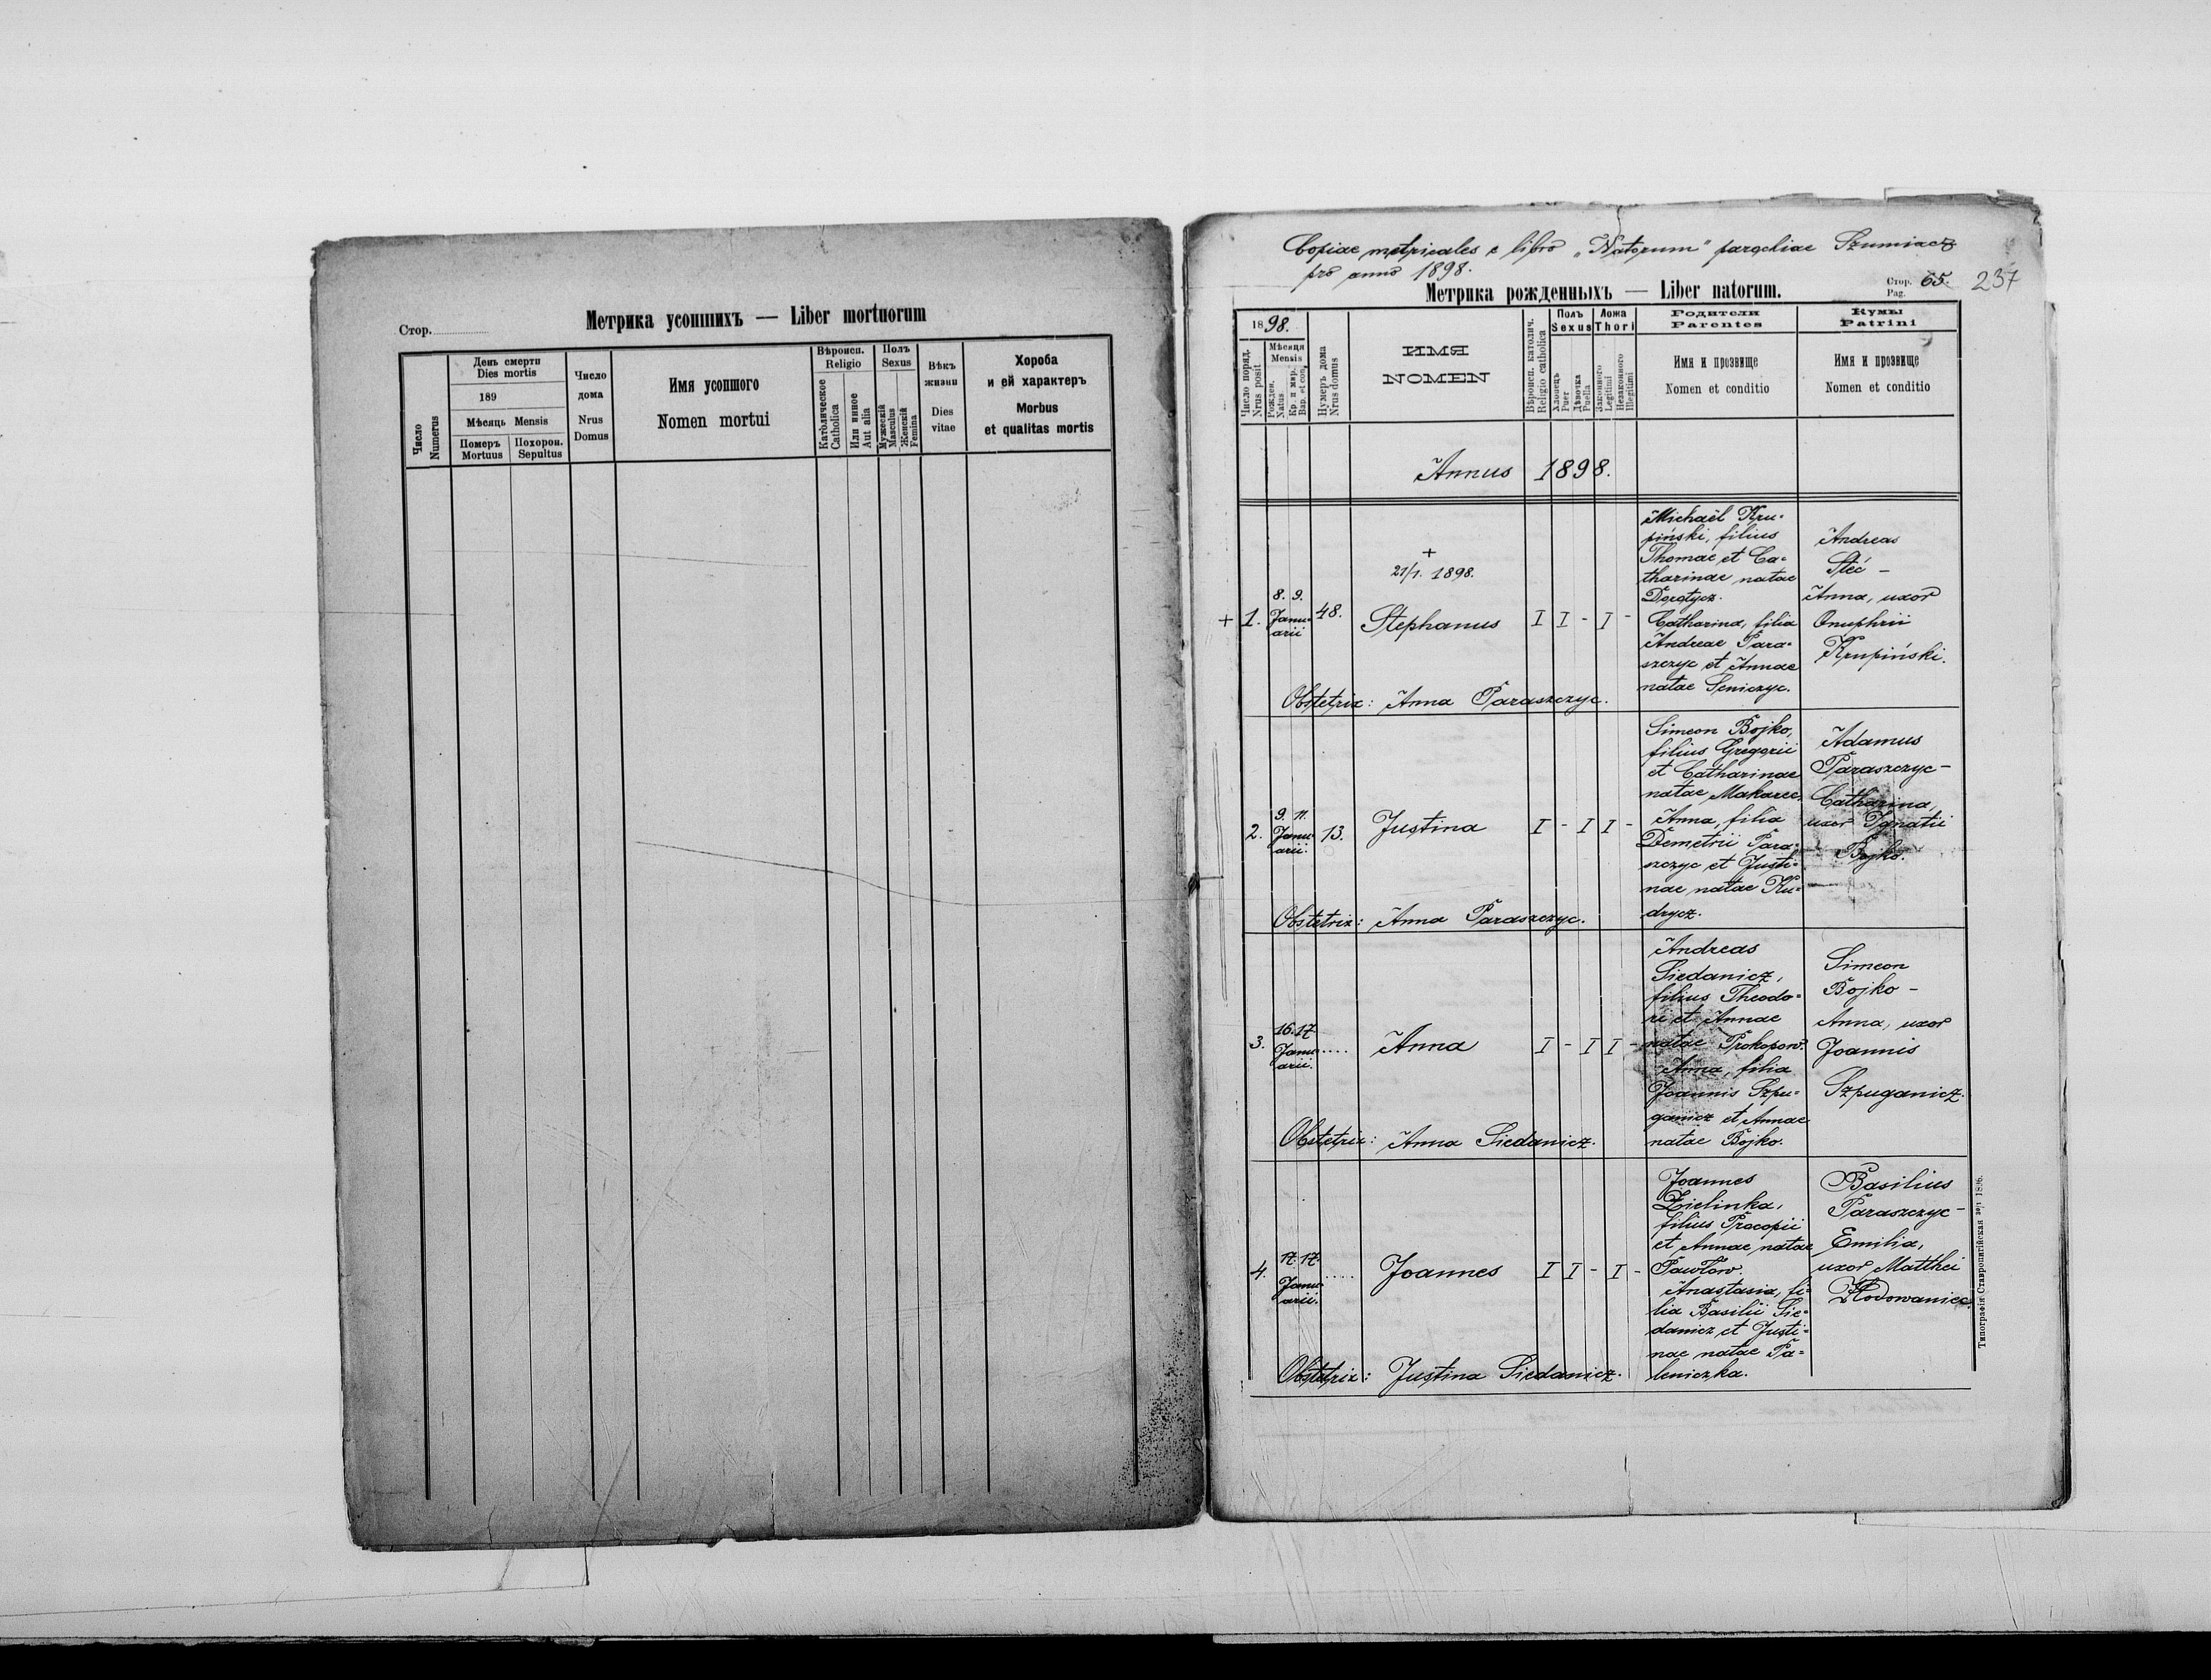 Стор.
Метрика усопшихъ — Liber mortuorum
Число
Numerus
День смерти
Dies mortis
189
Мѣсяць Mensis
Померъ
Mortuus
Похорон.
Sepultus
Число
дома
Nrus
Domus
Имя усопшого
Nomen mortui
Вѣроисп.
Religio
Католическое
Catholica
Или инное
Aut alia
Полъ
Sexus
Мужескій
Masculus
Женскій
Femina
Вѣкъ
жизни
Dies
vitae
Хороба
и ей характеръ
Morbus
et qualitas mortis
Copiae metricales e libro „Natorum" parochiae Szumiacz
pro anno 1898.
Метрика рожденныхъ — Liber natorum.
Стор.
Pag.
65.
237
1898.
Число поряд.
Nrus posit
Мѣсяця
Mensis
Рожден.
Natus
Кр. и мир.
Bap. et con.
Нумеръ дома
Nrus domus
ИМЯ
NOMEN
Вѣроисп. католич.
Religio catholica
Полъ
Sexus
Хлопець
Puer
Дѣвочка
Puella
Ложа
Thori
Законного
Legitimi
Незаконного
Illegitimi
Родители
Parentes
Имя и прозвище
Nomen et conditio
Кумы
Patrini
Имя и прозвище
Nomen et conditio
Annus 1898.
+ 1.
8. 9.
Janu-
arii
48.
+
21/1. 1898.
Stephanus
I I - I -
Michaël Kru-
piński, filius
Thomae et Ca-
tharinae natae
Dorotycz.
Catharina, filia
Andreae Para-
szczyc et Annae
natae Seniczyc.
Andreas
Steć -
Anna, uxor
Onuphrii
Krupiński.
Obstetrix: Anna Paraszczyc.
2.
9. 11.
Janu-
arii.
13.
Justina
I - I I -
Simeon Bojko,
filius Gregorii
et Catharinae
natae Makarec.
Anna, filia
Demetrii Para-
szczyc et Justi-
nae natae Ku-
drycz.
Adamus
Paraszczyc -
Catharina,
uxor Ignatii
Bojko.
Obstetrix: Anna Paraszczyc.
3.
16. 17.
Janu-
arii.
....
Anna
I - I I -
Andreas
Siedanicz,
filius Theodo-
ri et Annae
natae Prokopow.
Anna, filia
Joannis Szpu-
ganicz et Annae
natae Bojko.
Simeon
Bojko -
Anna, uxor
Joannis
Szpuganicz.
Obstetrix: Anna Siedanicz.
4.
17. 17.
Janu-
arii.
....
Joannes
I I - I -
Joannes
Zielinka,
filius Procopii
et Annae natae
Pawłow.
Anastasia, fi-
lia Basilii Sie-
danicz et Justi-
nae natae Pa-
leniczka.
Basilius
Paraszczyc -
Emilia,
uxor Matthei
Hodowaniec.
Obstetrix: Justina Siedanicz.
Типографія Ставропигійская 1896.